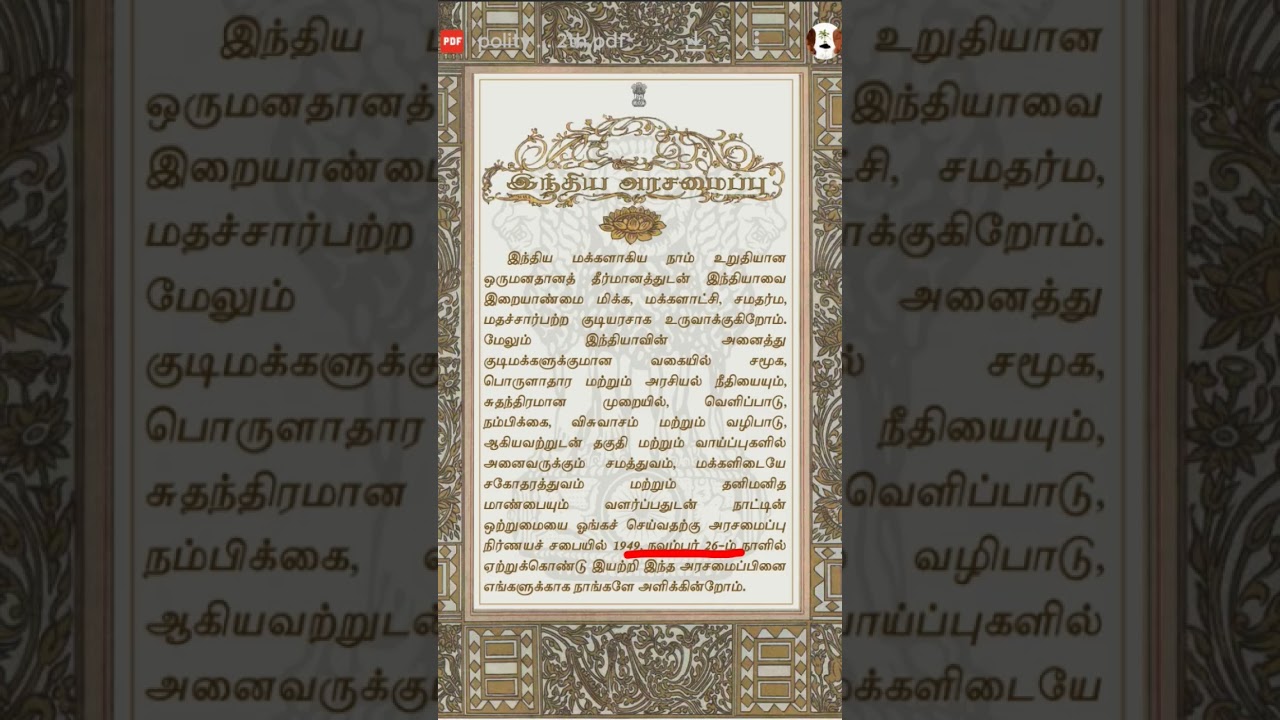 PDF polity 2th.pdf
இந்திய அரசமைப்பு
இந்திய மக்களாகிய நாம் உறுதியான
ஒருமனதானத் தீர்மானத்துடன் இந்தியாவை
இறையாண்மை மிக்க, மக்களாட்சி, சமதர்ம,
மதச்சார்பற்ற குடியரசாக உருவாக்குகிறோம்.
மேலும் இந்தியாவின் அனைத்து
குடிமக்களுக்குமான வகையில் சமூக,
பொருளாதார மற்றும் அரசியல் நீதியையும்,
சுதந்திரமான முறையில், வெளிப்பாடு,
நம்பிக்கை, விசுவாசம் மற்றும் வழிபாடு,
ஆகியவற்றுடன் தகுதி மற்றும் வாய்ப்புகளில்
அனைவருக்கும் சமத்துவம், மக்களிடையே
சகோதரத்துவம் மற்றும் தனிமனித
மாண்பையும் வளர்ப்பதுடன் நாட்டின்
ஒற்றுமையை ஓங்கச் செய்வதற்கு அரசமைப்பு
நிர்ணயச் சபையில் 1949 நவம்பர் 26-ம் நாளில்
ஏற்றுக்கொண்டு இயற்றி இந்த அரசமைப்பினை
எங்களுக்காக நாங்களே அளிக்கின்றோம்.